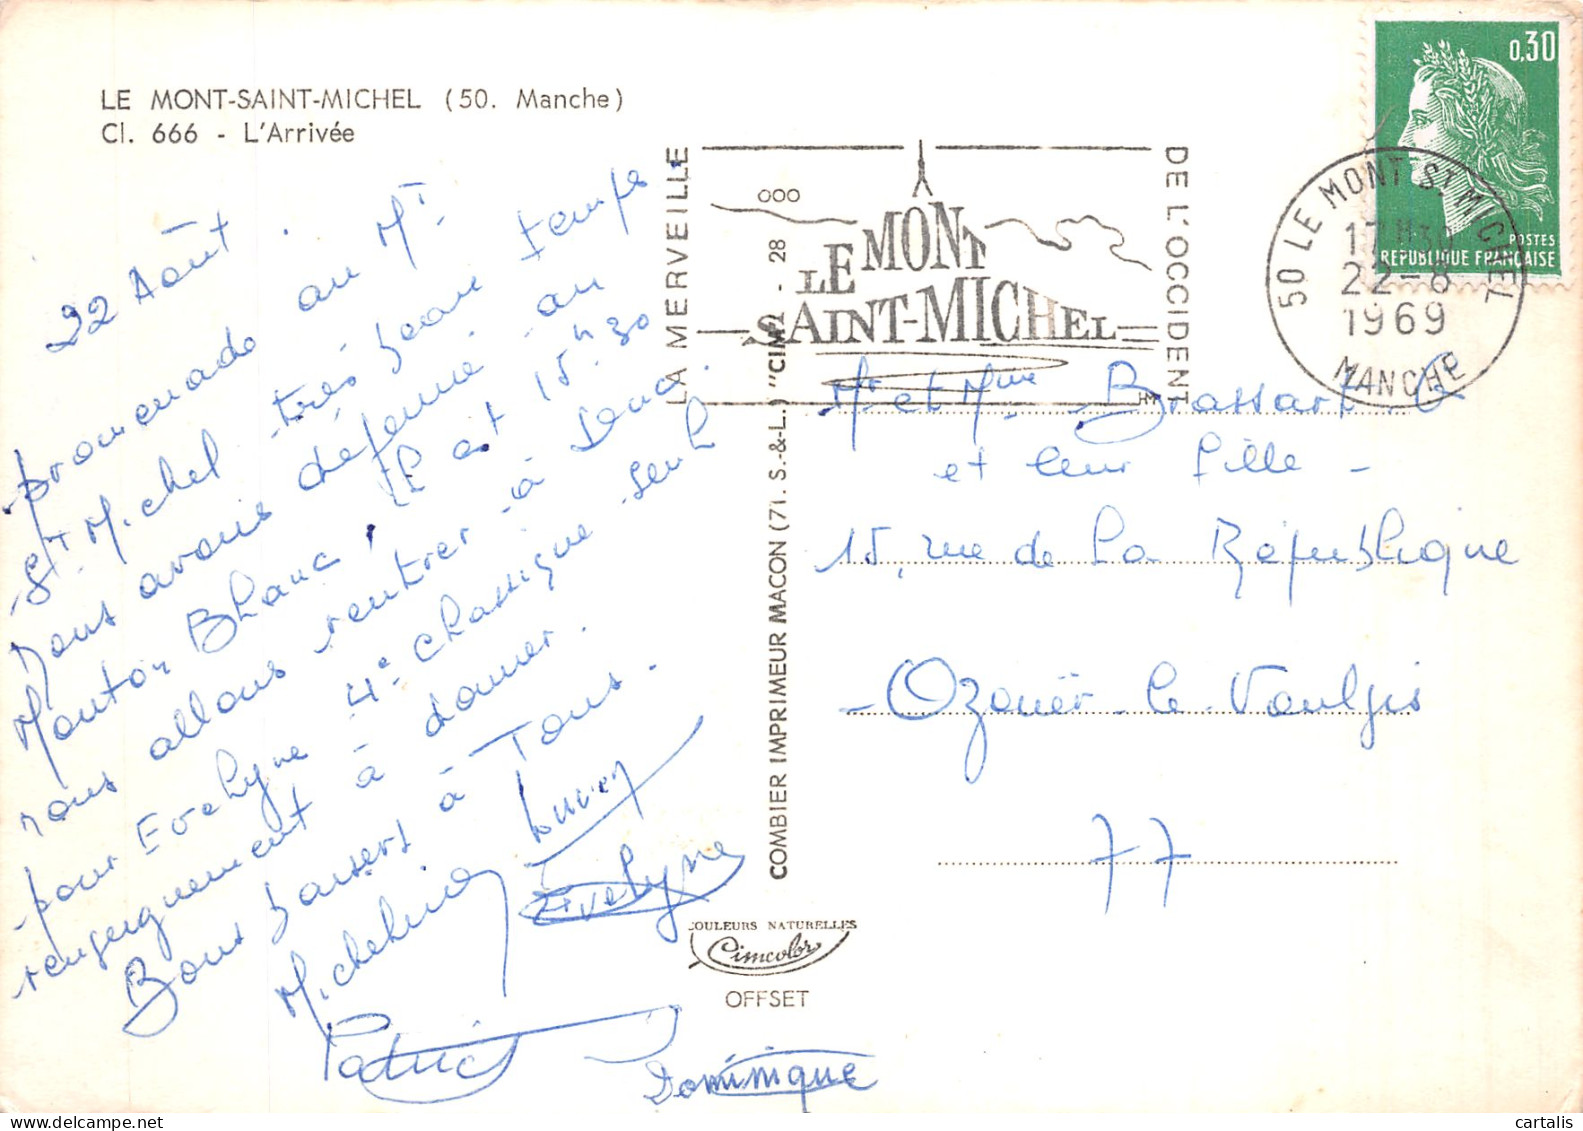 LE MONT-SAINT-MICHEL (50. Manche)
Cl. 666 - L'Arrivée
22 Août.
promenade au Mt
St Michel très beau temps
nous avons déjeuné au
Mouton Blanc, il est 15h30
nous allons rentrer à
pour Evelyne 4e classique seul
renseignement à donner.
Bons baisers à Tous.
Micheline
Evelyne
Patrick
Dominique
COMBIER IMPRIMEUR MACON (71. S.-&-L.) "CIM" - 28
COULEURS NATURELLES
Cimcolor
OFFSET
LA MERVEILLE
LE MONT
SAINT-MICHEL
DE L'OCCIDENT
50 LE MONT ST MICHEL
17H30
22-8
1969
MANCHE
0,30
POSTES
REPUBLIQUE FRANCAISE
Mr et Mme Brassart
et leur fille -
15, rue de la République
- Ozouër-le-Voulgis
77
cartalis